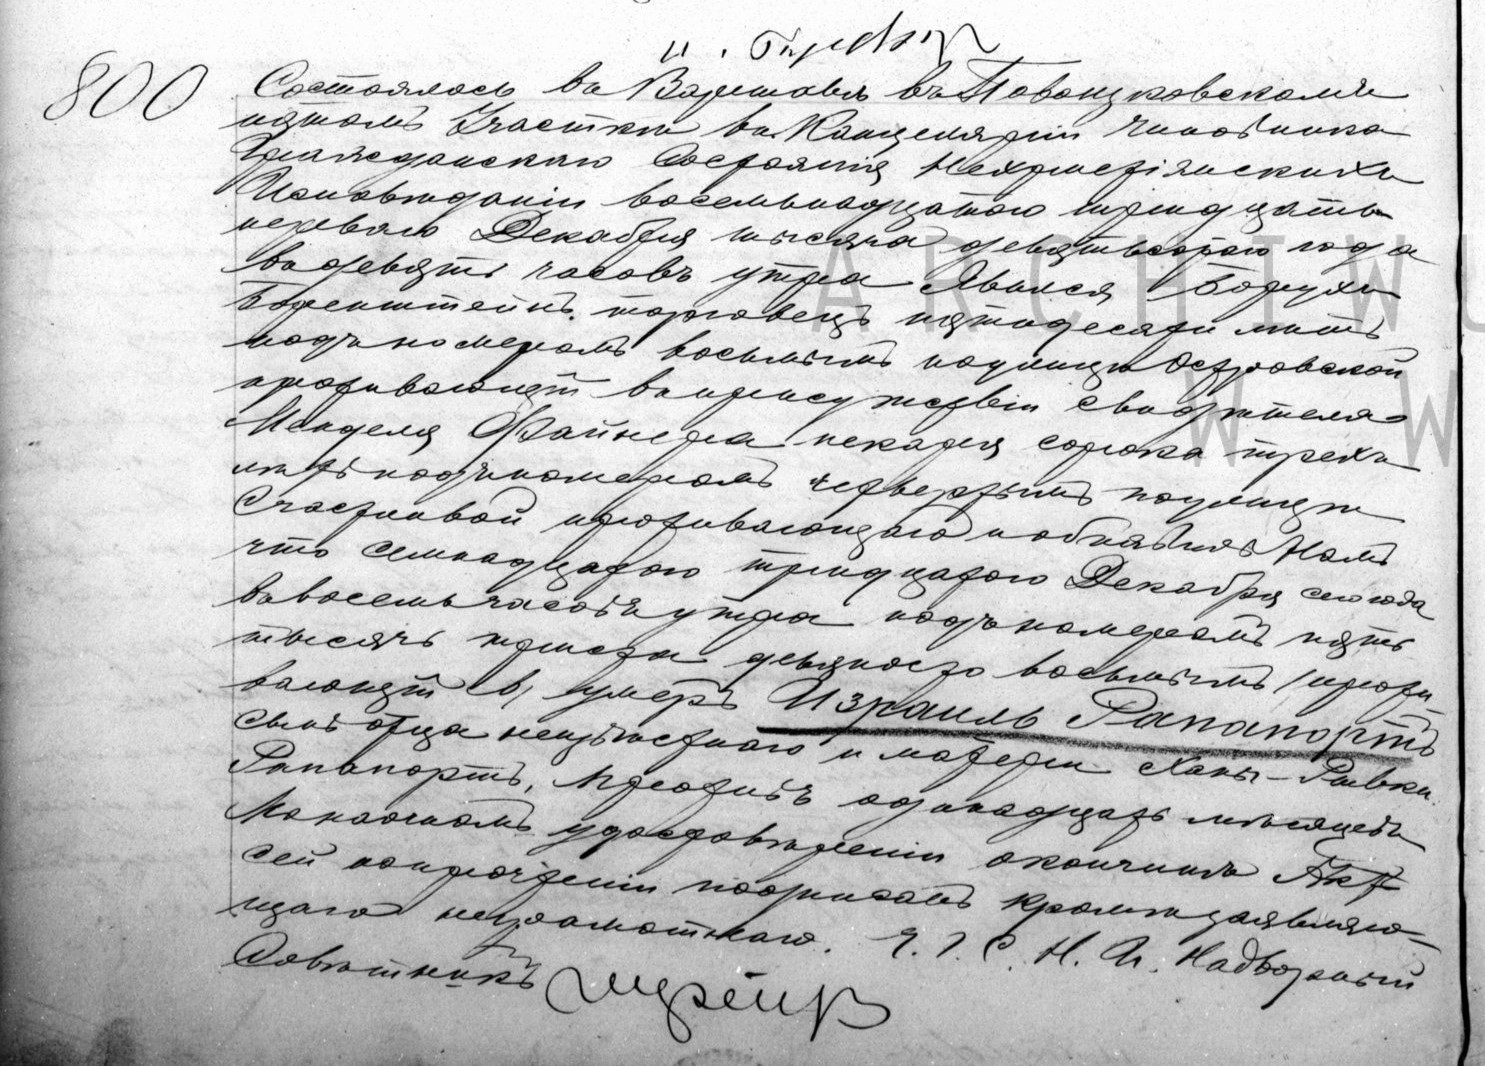 800
Состоялось въ Варшавѣ въ Повонзковскомъ
пятомъ Участкѣ въ Канцеляріи Чиновника
Гражданскаго Состоянія Нехристіянскихъ
Исповѣданій восемнадцатаго тридцать
перваго Декабря тысяча девятьсотаго года
въ девять часовъ утра Явился Борухъ
Боренштейнъ торговецъ пятидесяти лѣтъ
подъ номеромъ восьмымъ по улицѣ Островской
проживающій въ присутствіи свидѣтеля
Менделя Файнера пекаря сорока трехъ
лѣтъ подъ номеромъ четвертымъ по улицѣ
Счастливой проживающаго и объявилъ Намъ
что семнадцатаго тридцатаго Декабря сего года
въ восемь часовъ утра подъ номеромъ пять
тысячъ триста девяносто восьмымъ (прожи-
вающій) умеръ Израиль Рапапортъ
сынъ отца неизвѣстнаго и матери Ханы-Ривки
Рапапортъ, проживъ одинадцать мѣсяцевъ
По наочномъ удостовѣреніи о кончинѣ Актъ
сей по прочтеніи подписанъ кромѣ заявляю-
щаго неграмотнаго. Ч. Г. С. Н. И. Надворный
Совѣтникъ